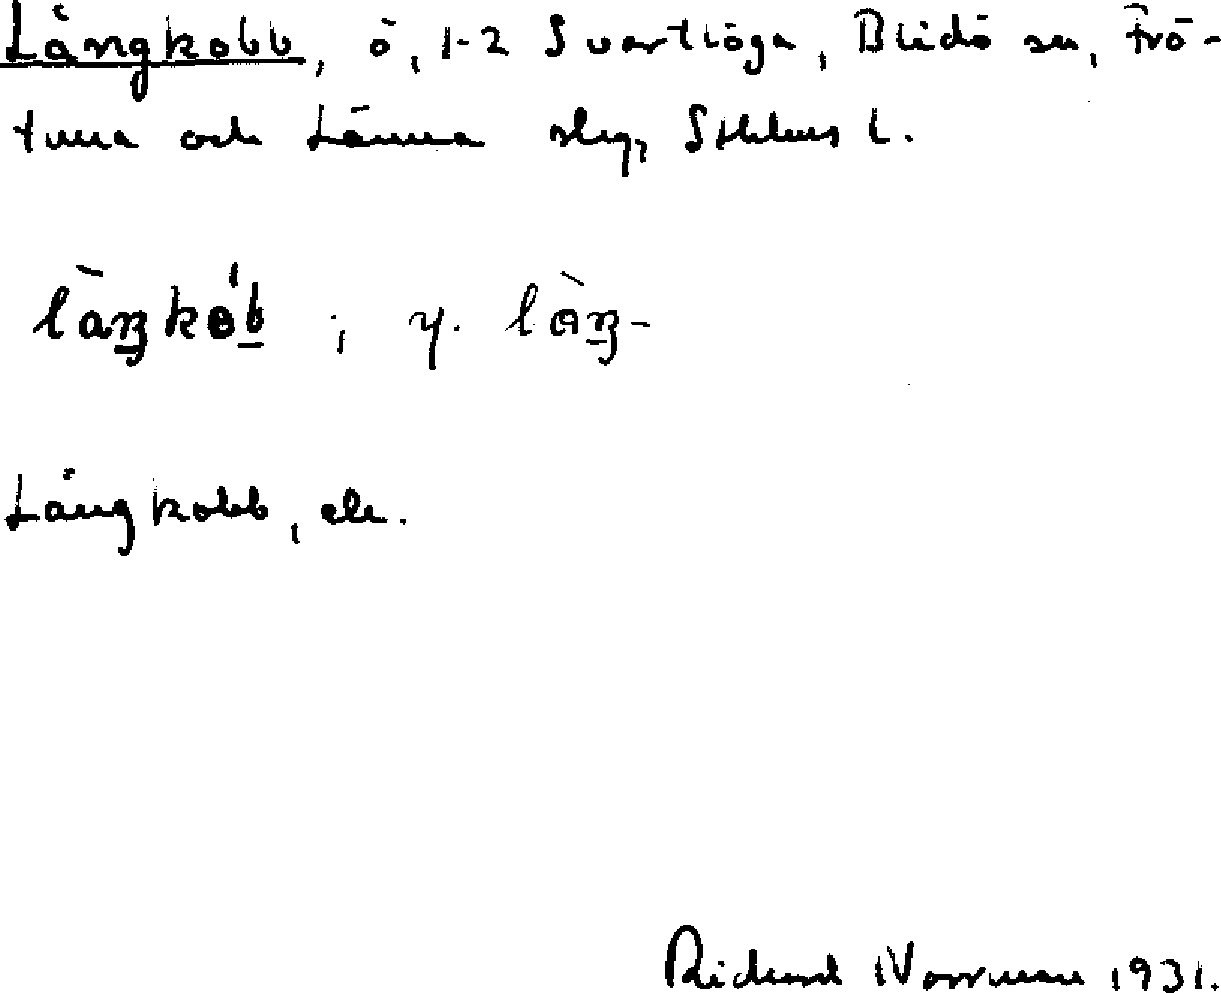 Långkobb, ö, 1-2 Svartlöga, Blidö sn, Frö-
tuna och Länna slg, Sthlms l.
làŋkób ; y. lòŋ-
Långkobb, ek.
Rickard Norrman 1931.